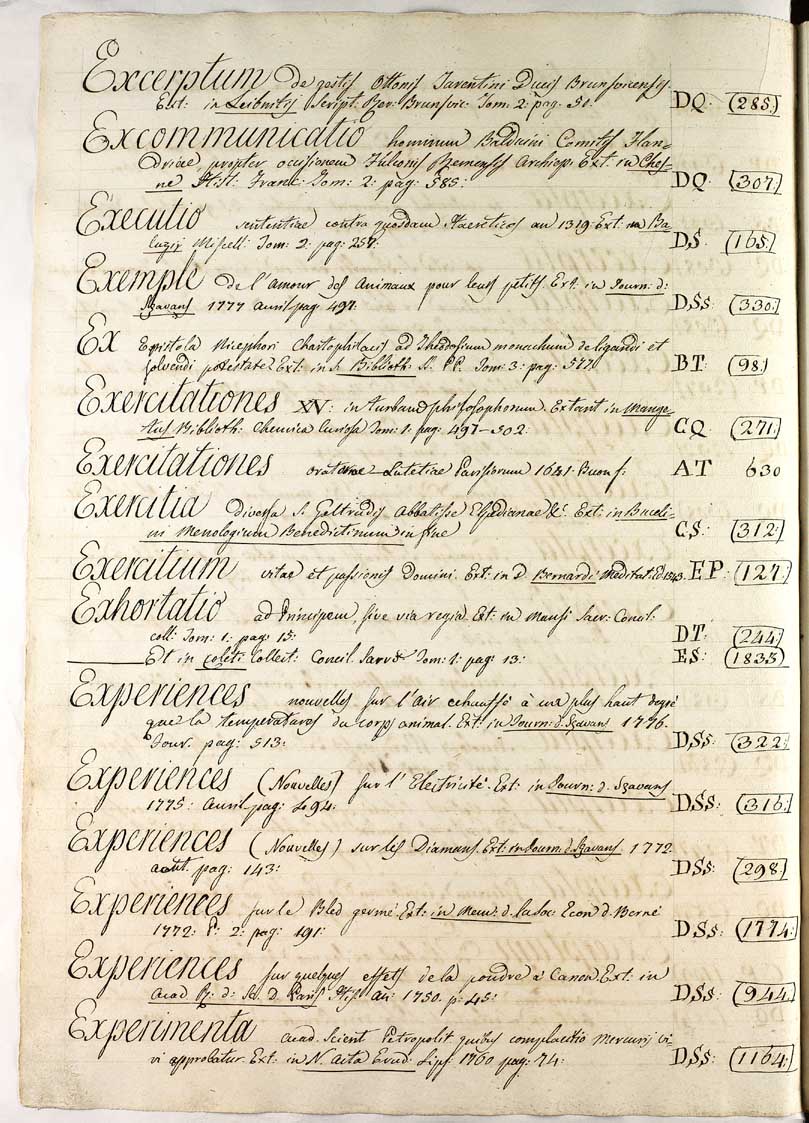 Excerptum de gestis Ottonis Tarentini Ducis Brunsvicensis.
Ext: in Leibnitzs Script. Rer: Brunsvic: Tom: 2: pag: 51. DQ. (285:)
Excommunicatio hominum Balduini Comitis Flan=
driae propter occisionem Fulconis Remensis Archiep: Ext. in Ches=
ne Hist: Franc: Tom: 2: pag: 585: DQ (307:)
Executio sententiae contra quosdam Haereticos an 1319. Ext: in Ba
luziy Miscell: Tom: 2: pag: 257: D.S. (165:)
Exemple de l'amour des Animaux pour leurs petits. Ext: in Journ: d:
Sçavans 1777 Avril pag: 497: DSs: (330:)
Ex Epistola Nicephori Chartophilacis ad Theodosium monachum de ligandi et
solvendi potestate Ext: in S. Biblioth: SS. PP. Tom: 3: pag: 577. BT. (98.)
Exercitationes XV: in turbam philosophorum. Extant in Mange
tus Biblioth: Chemica Curiosa Tom: 1. pag: 497-502: CQ. (271:)
Exercitationes oratoriae Lutetiae Parisiorum 1641. Buon f: AT 630
Exercitia diversa S. Geltrudis Abbatisse Elpedianae &c. Ext: in Buceli=
ni Menologium Benedictinum in fine CS: (312:)
Exercitium vitae et passionis Domini. Ext: in D. Bernardi Meditat: Ed. 1543. EP. (127:)
Exhortatio ad Principem, sive via regia Ext: in Mansi Sacr: Concil:
coll: Tom: 1: pag: 15: DT: (244:)
Et in Coleti Collect: Concil. Tom: 1: pag: 13: ES: (1833)
Experiences nouvelles sur l'air echauffé à un plus haut degré
que la temperatures du corps animal. Ext: in Journ: d. Sçavans 1776.
Jour. pag: 513: DSs: (322:)
Experiences (Nouvelles) sur l'Electricité. Ext: in Journ: d. Sçavans
1775: Avril pag: 494: DSs: (316:)
Experiences (Nouvelles) sur les Diamans. Ext: in Journ: d. Sçavans. 1772.
août. pag: 143: DSs: (298.)
Experiences sur le Bled germé. Ext: in Mem: d. la Soc: Econ: d. Berne
1772: P: 2: pag: 191: DSs: (1774:)
Experiences sur quelques effets de la poudre a Canon. Ext: in
Acad R: d: Sc. D. Paris Hist. an: 1750. p: 45: DSs: (944.)
Experimenta Acad. Scient Petropolit quibus complacitio mercurii vi=
vi approbatur. Ext: in N. Acta Erud: Lips: 1760 pag: 74: DSs: (1164:)